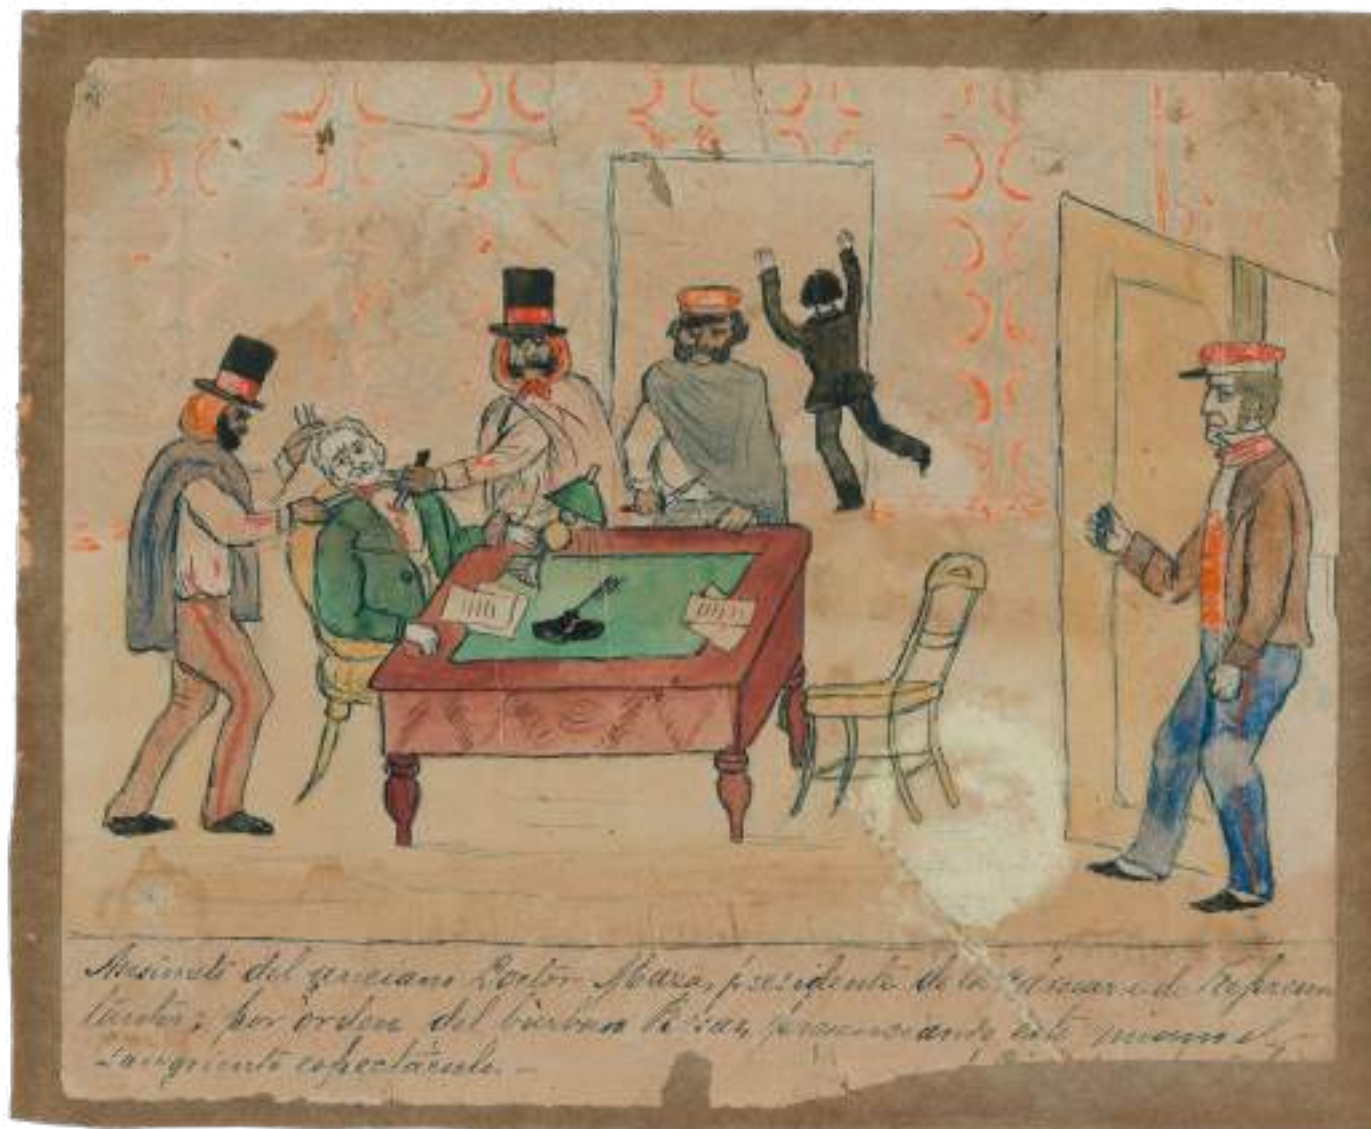 Asesinato del anciano Doctor Maza, presidente de la Cámara de Represen
tantes; por órden del bárbaro Rosas, presenciando este mismo el
sangriento espectáculo.—